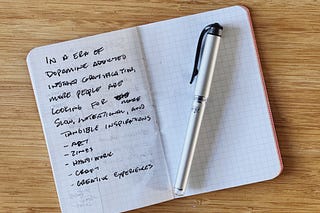 IN A ERA OF
DOPAMINE ADDICTED
INSTANT GRATIFICATION,
MORE PEOPLE ARE
LOOKING FOR MORE
SLOW, INTENTIONAL, AND
TANGIBLE INSPIRATIONS
- ART
- ZINES
- HANDIWORK
- CRAFT
- CREATIVE EXPERIENCES